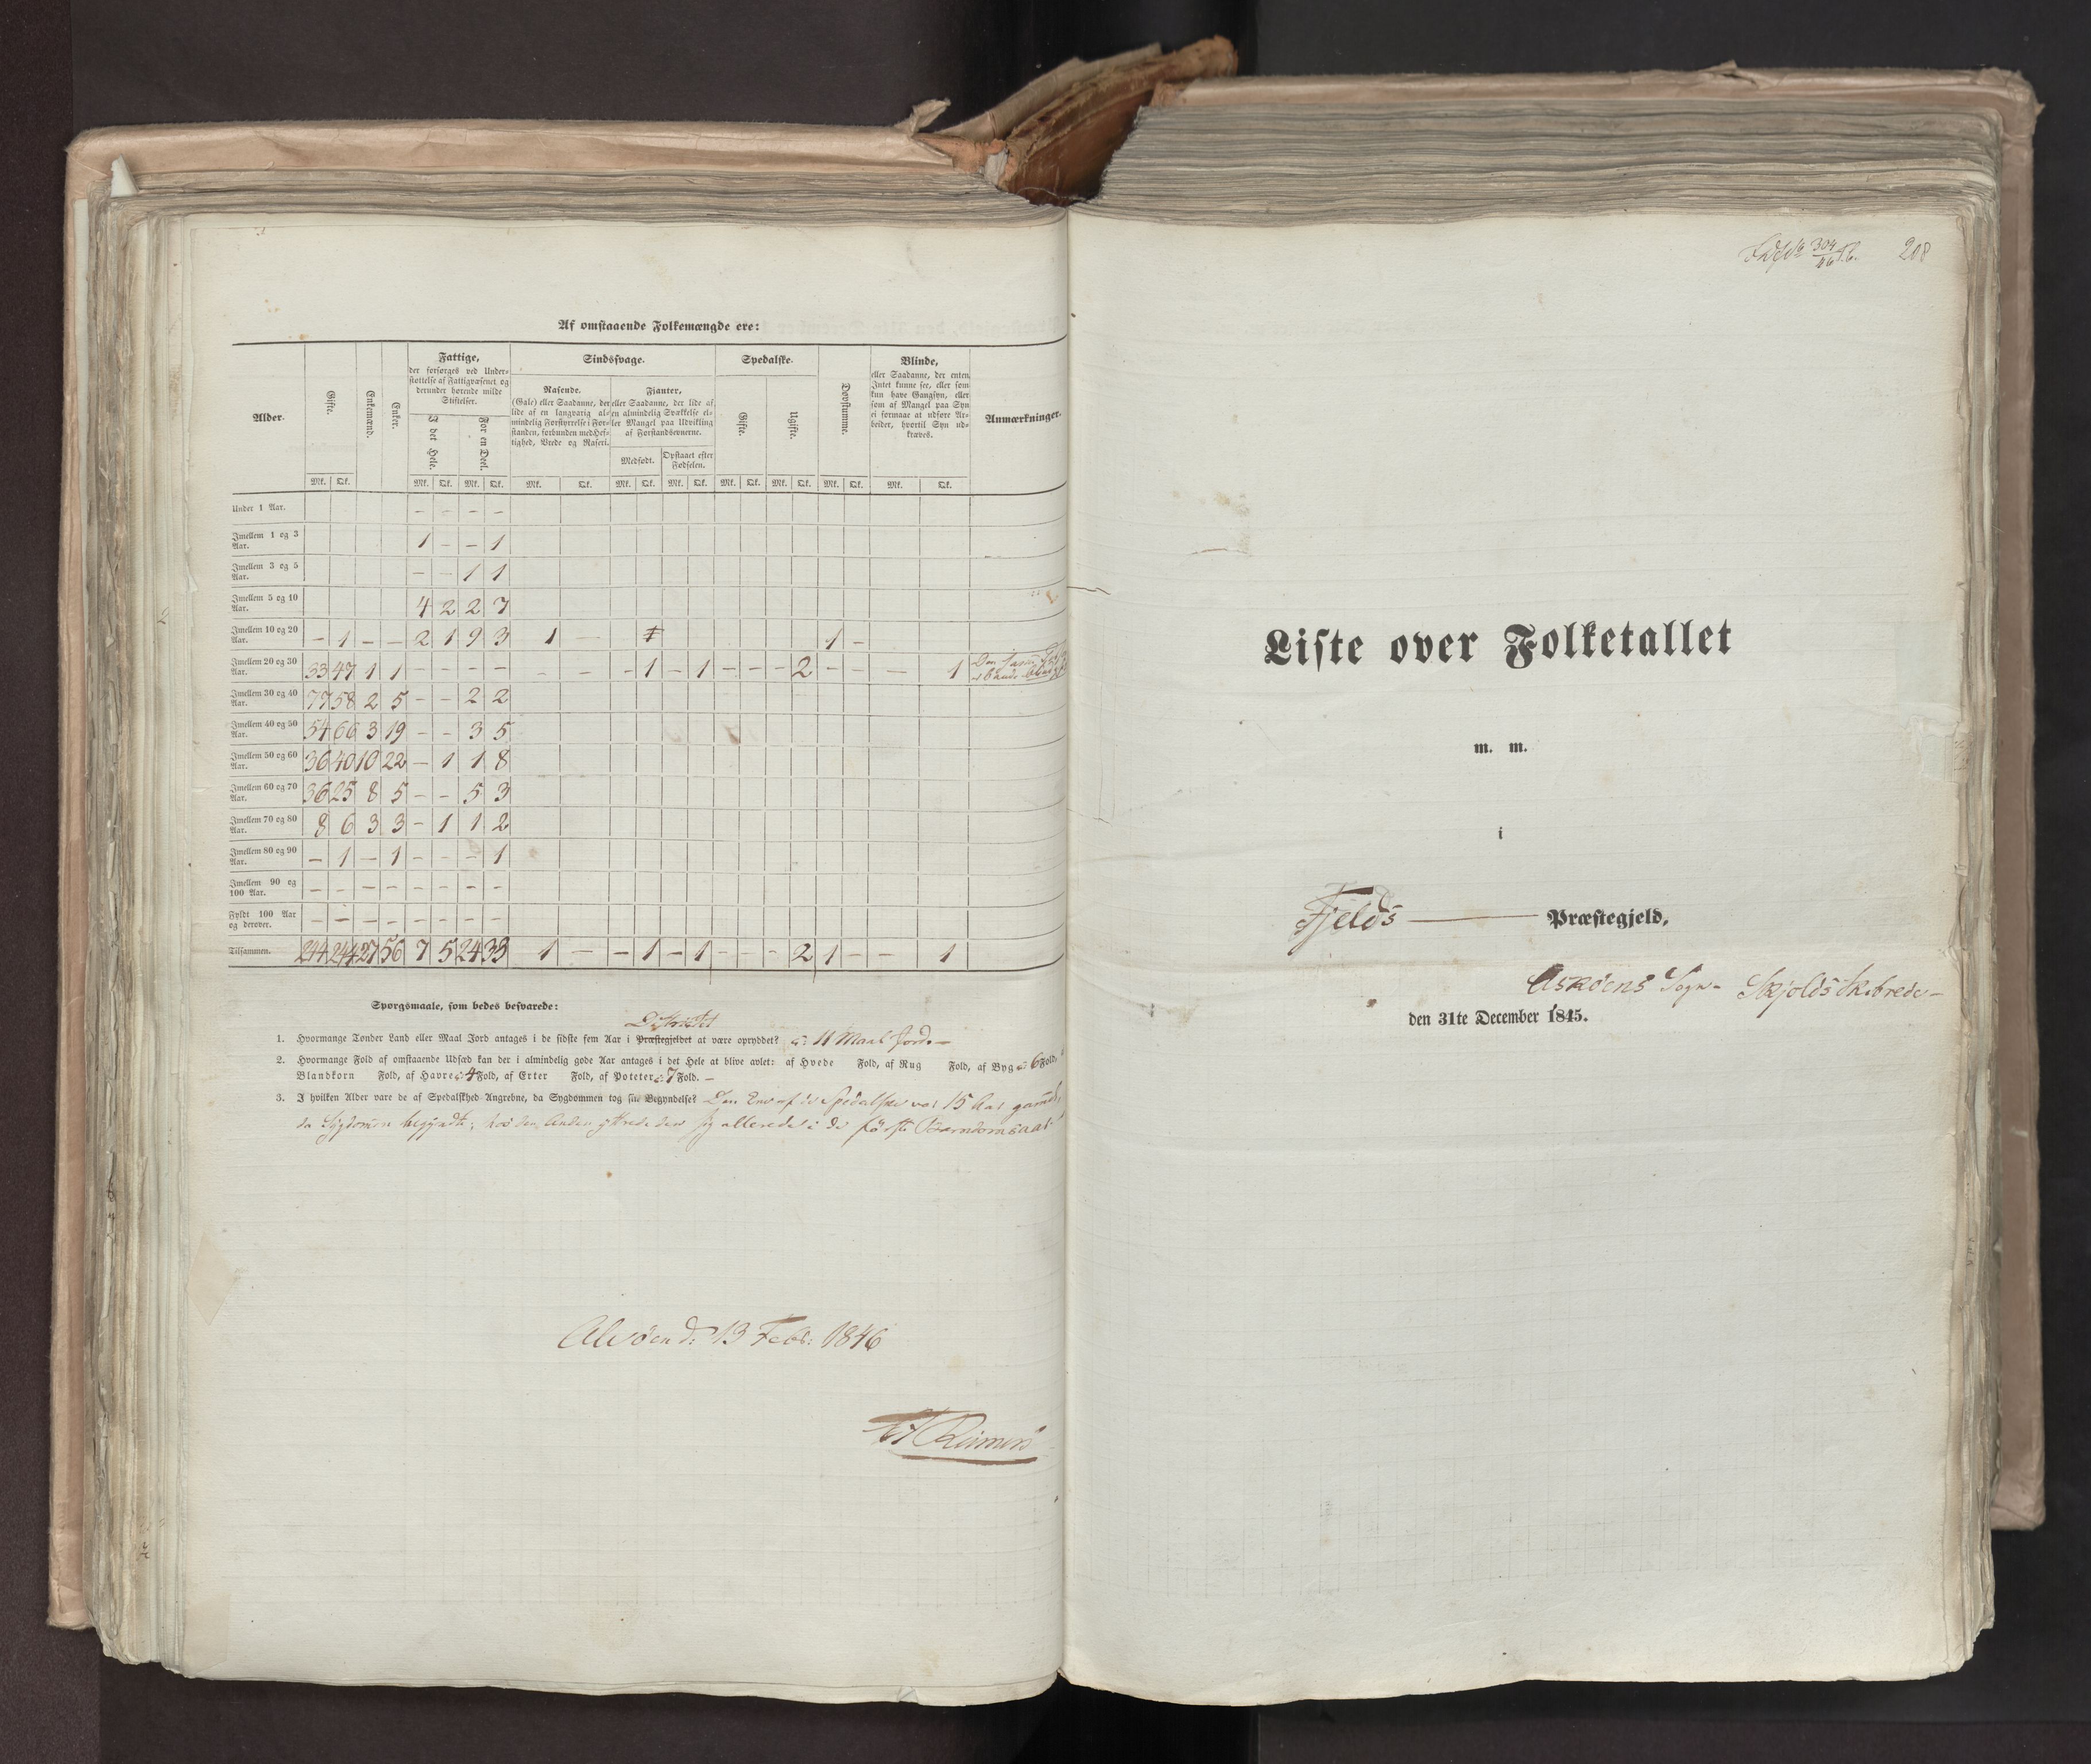 Af omstaaende Folkemængde ere:
Alder. Gifte. Enkemænd. Enker. Fattige, Sindssvage. Spedalske. Døvstumme. Blinde, Anmærkninger.
der forsørges ved Under-
støttelse af Fattigvæsenet og
derunder hørende milde
Stiftelser.
I det Hele. For en Deel.
Rasende.
(Gale) eller Saadanne, der
lide af en langvarig al-
mindelig Forstyrrelse i For-
standen, forbunden med Hef-
tighed, Vrede og Raseri.
Fjanter,
eller Saadanne, der lide af
en almindelig Svækkelse el-
ler Mangel paa Udvikling
af Forstandsevnerne.
Medfødt. Opstaaet efter
Fødselen.
Gifte. Ugifte.
eller Saadanne, der enten
Intet kunne see, eller som
kun have Gangsyn, eller
som af Mangel paa Syn
ei formaae at udføre Ar-
beider, hvortil Syn ud-
kræves.
Mk. Qk. Mk. Qk. Mk. Qk. Mk. Qk. Mk. Qk. Mk. Qk. Mk. Qk. Mk. Qk. Mk. Qk. Mk. Qk.
Under 1 Aar. – – – –
Imellem 1 og 3
Aar. 1 – – 1
Imellem 3 og 5
Aar. – – 1 1
Imellem 5 og 10
Aar. 4 2 2 7
Imellem 10 og 20
Aar. – 1 – – 2 1 9 3 1 – 1 –
Imellem 20 og 30
Aar. 33 47 1 1 – – – – – – – 1 – 1 – – – 2 – – – 1
Imellem 30 og 40
Aar. 77 58 2 5 – – 2 2
Imellem 40 og 50
Aar. 54 66 3 19 – – 3 5
Imellem 50 og 60
Aar. 36 40 10 22 – 1 1 8
Imellem 60 og 70
Aar. 36 25 8 5 – – 5 3
Imellem 70 og 80
Aar. 8 6 3 3 – 1 1 2
Imellem 80 og 90
Aar. – 1 – 1 – – – 1
Imellem 90 og
100 Aar. – – – – – – – –
Fyldt 100 Aar
og derover. – – – – – – – –
Tilsammen. 244 244 27 56 7 5 24 33 1 – – 1 – 1 – – – 2 1 – – 1
Spørgsmaale, som bedes besvarede:
Districtet
1. Hvormange Tønder Land eller Maal Jord antages i de sidste fem Aar i Præstegjeldet at være opryddet? c: 11 Maal Jord. –
2. Hvormange Fold af omstaaende Udsæd kan der i almindelig gode Aar antages i det Hele at blive avlet: af Hvede Fold, af Rug Fold, af Byg c: 6 Fold, af
Blandkorn Fold, af Havre c: 4 Fold, af Erter Fold, af Poteter c: 7 Fold. –
3. I hvilken Alder vare de af Spedalskhed Angrebne, da Sygdommen tog sin Begyndelse? Den Ene af de Spedalske var 15 Aar gammel,
da Sygdommen begyndte; hos den Anden yttrede den sig allerede i de første Barndomsaar
Alvøen d: 13 Febr: 1846
208
Liste over Folketallet
m. m.
i
Fjelds Præstegjeld,
Askøens Sogn – Skjolds Skibrede –
den 31te December 1845.